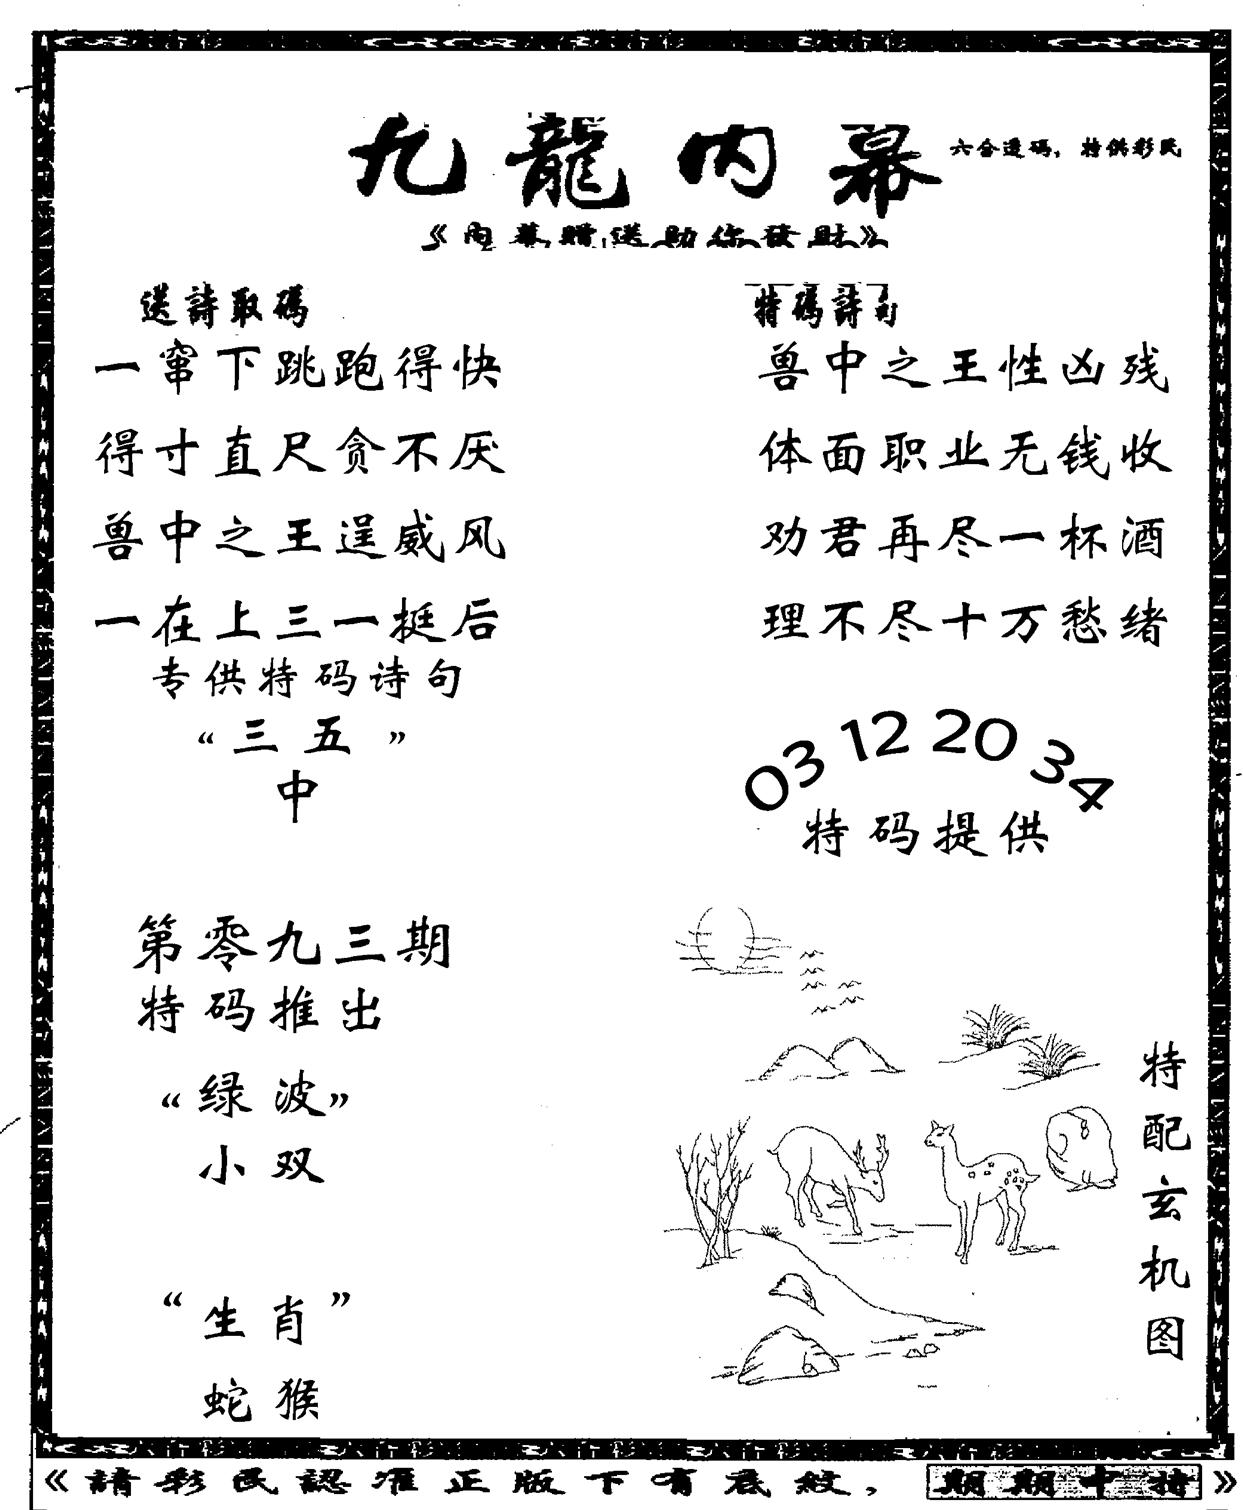 九龍内幕
六合透码，特供彩民
《内幕赠送助你發財》
送詩取碼
一窜下跳跑得快
得寸直尺贪不厌
兽中之王逞威风
一在上三一挺后
专供特码诗句
“三五”
中
特碼詩句
兽中之王性凶残
体面职业无钱收
劝君再尽一杯酒
理不尽十万愁绪
03 12 20 34
特码提供
第零九三期
特码推出
“绿波”
小双
“生肖”
蛇猴
特配玄机图
《請彩民認准正版下有底紋，期期中特》